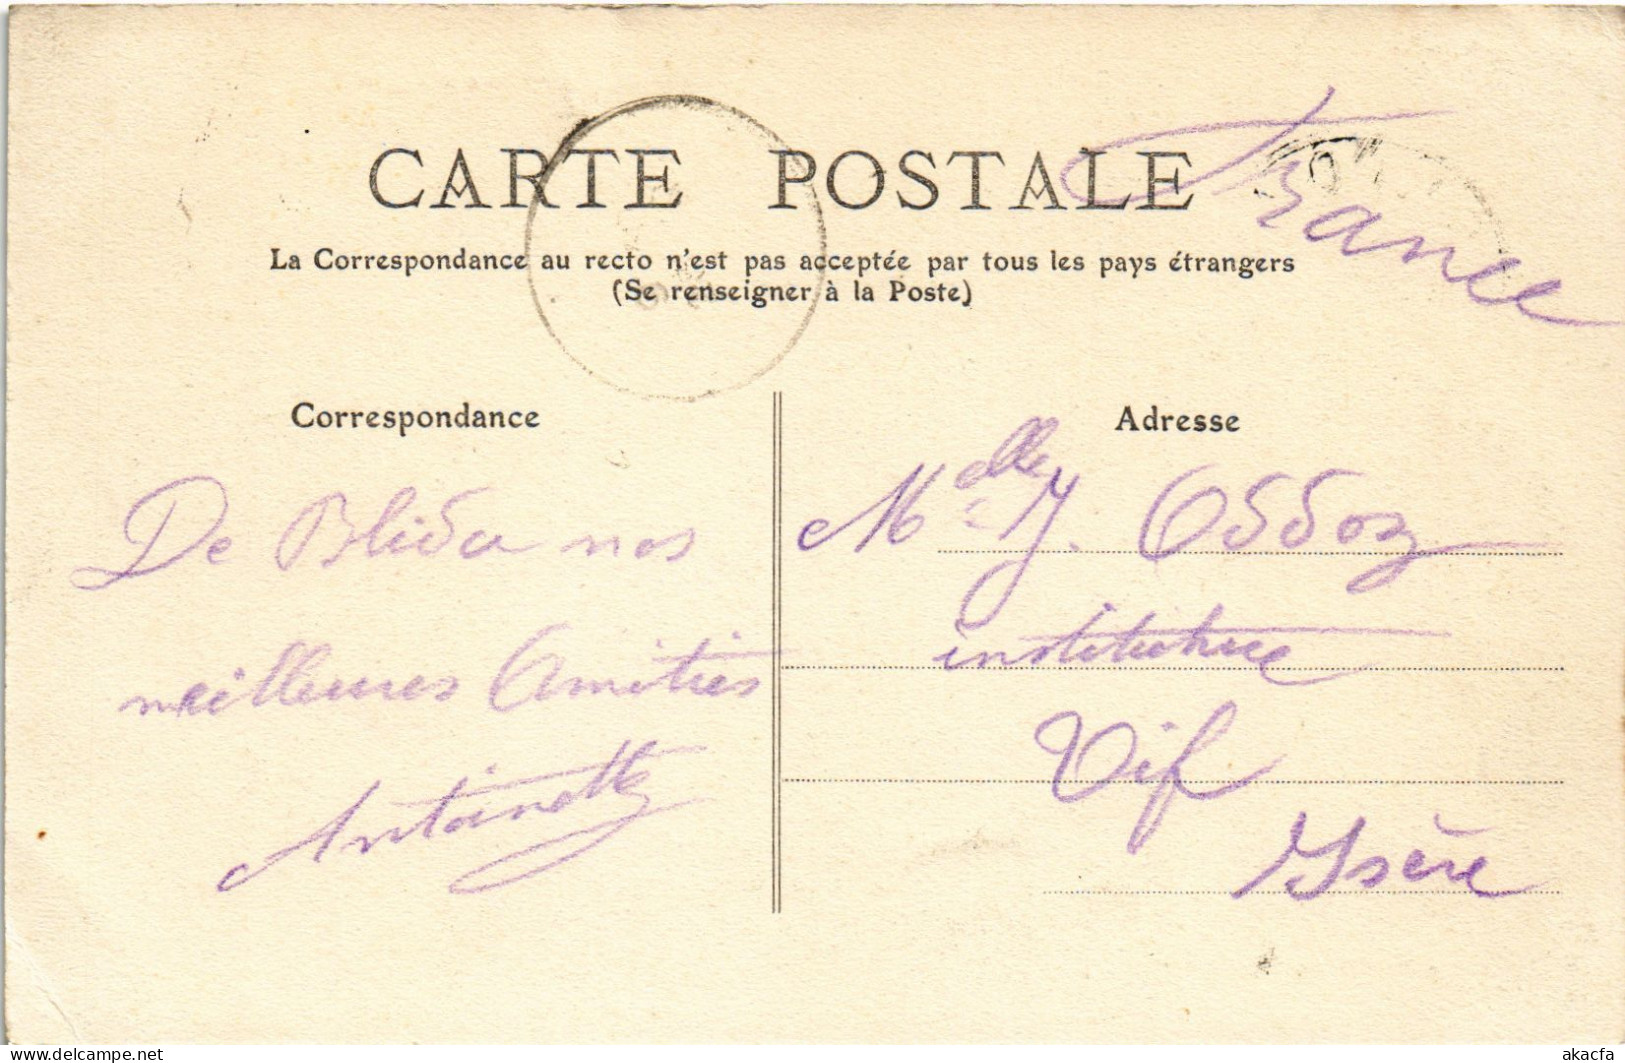 CARTE POSTALE
La Correspondance au recto n'est pas acceptée par tous les pays étrangers
(Se renseigner à la Poste)
France
Correspondance
De Blida nos
meilleures Amitiés
Antoinette
Adresse
Melle Y. Oddoz
institutrice
Vif
Isère
akacfa
www.delcampe.net